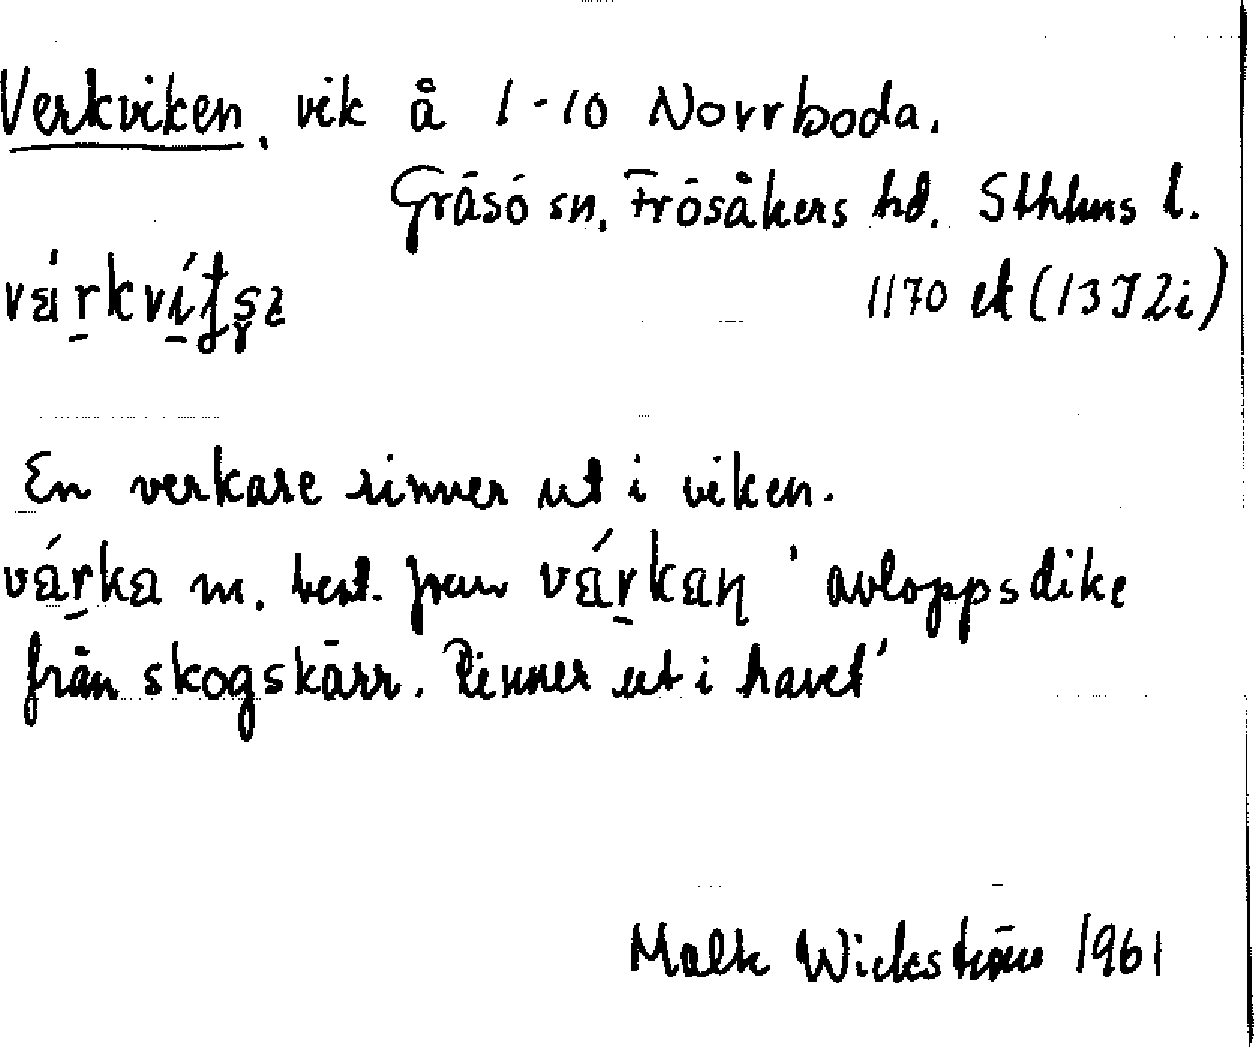 Verkviken, vik å 1-10 Norrboda.
Gräsö sn, Frösåkers hd. Sthlms l.
1170 ek (13I2i)
En verkare rinner ut i viken.
m. best. form ' avloppsdike
från skogskärr. Rinner ut i havet'
Wickström 1961